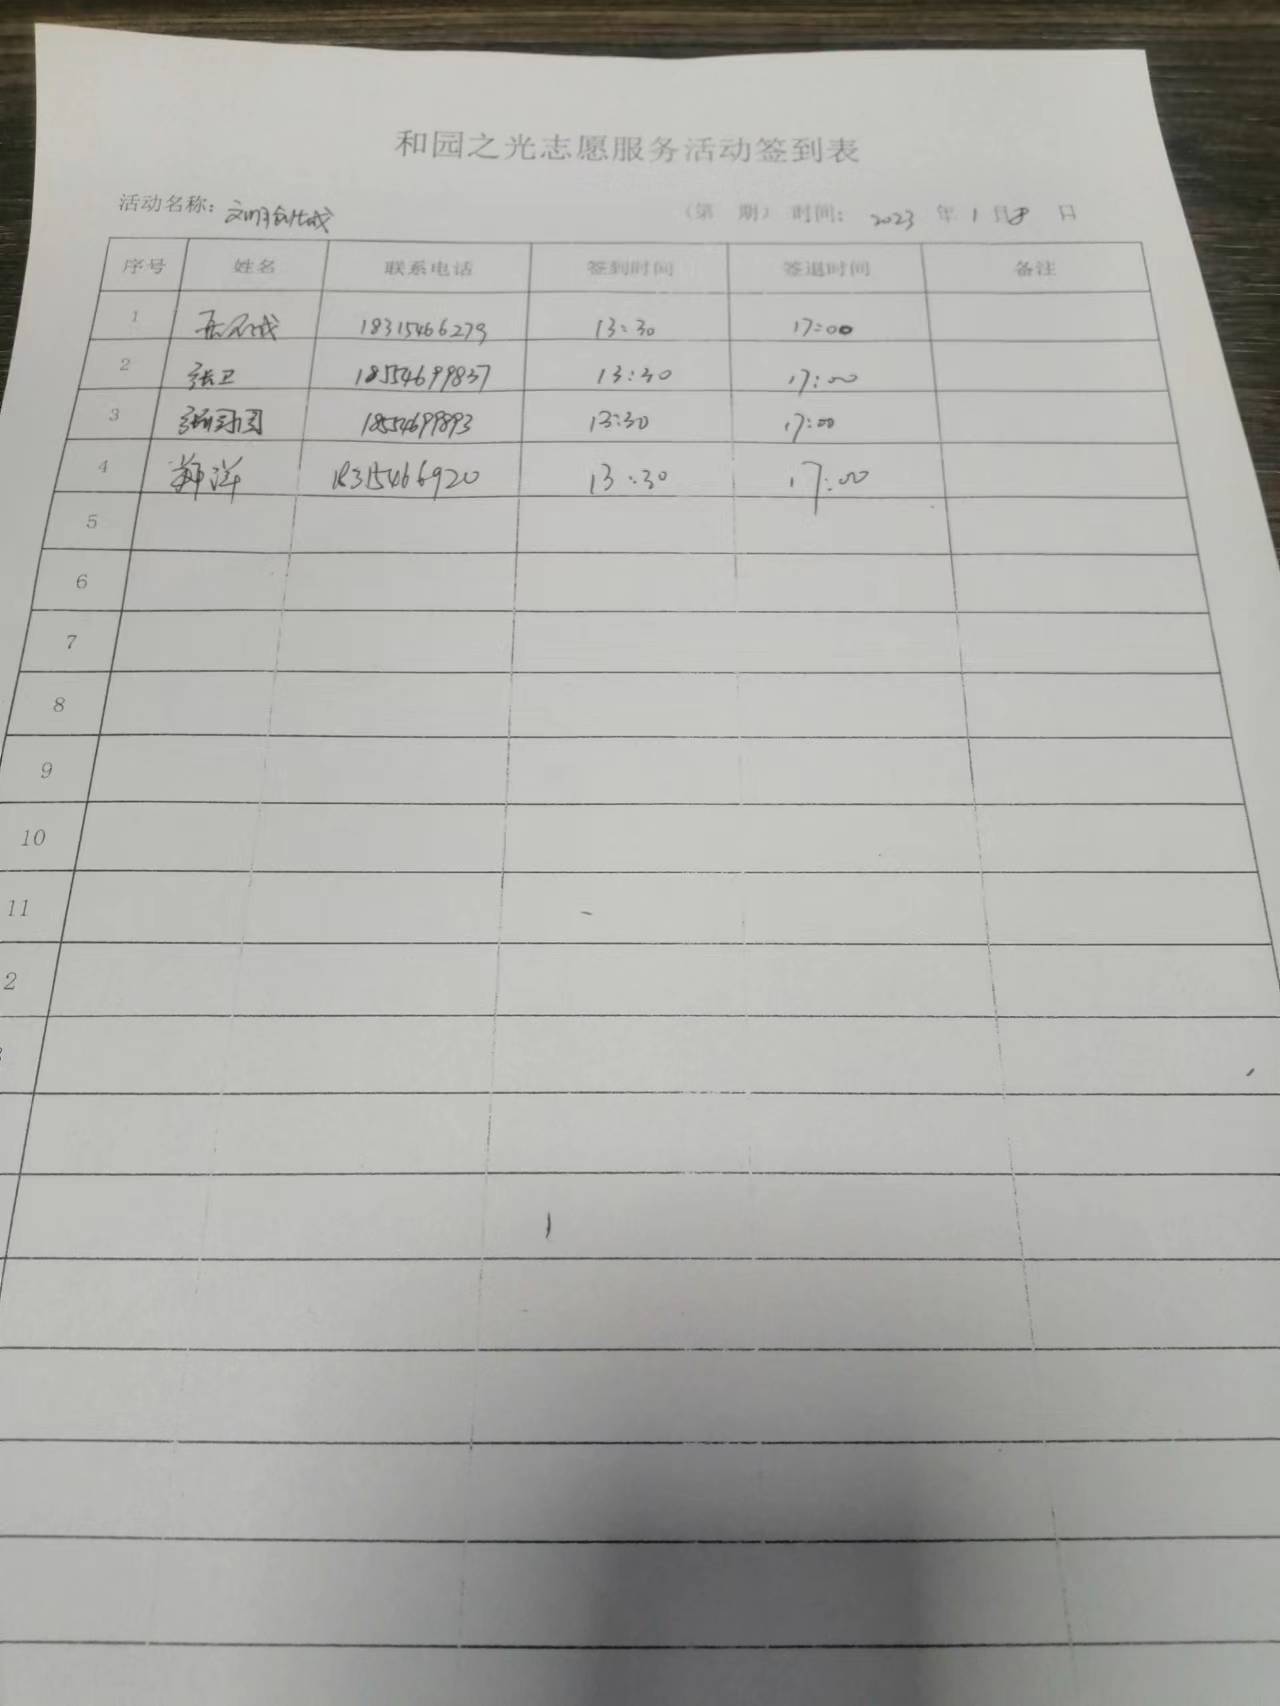 和园之光志愿服务活动签到表
活动名称：文明创城 （第 期） 时间： 2023 年 1 月 8 日
序号 姓名 联系电话 签到时间 签退时间 备注
1 18315466279 13:30 17:00
2 张卫 18554699837 13:30 17:00
3 18554699893 13:30 17:00
4 郭洋 18315466920 13:30 17:00
5
6
7
8
9
10
11
2